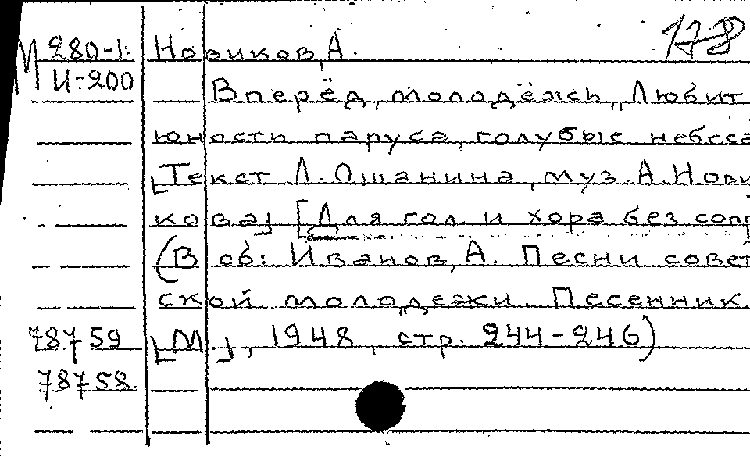 М 280-1 Новиков, А. 178
И-200
Вперёд, молодёжь, "Любит
юности паруса, голубые небеса
[Текст Л. Ошанина, муз. А. Нови
кова] [Для гол. и хора без сопр
(В сб: Иванов, А. Песни совет
ской молодежи. Песенник.
78759 [М.], 1948, стр. 244-246)
78758